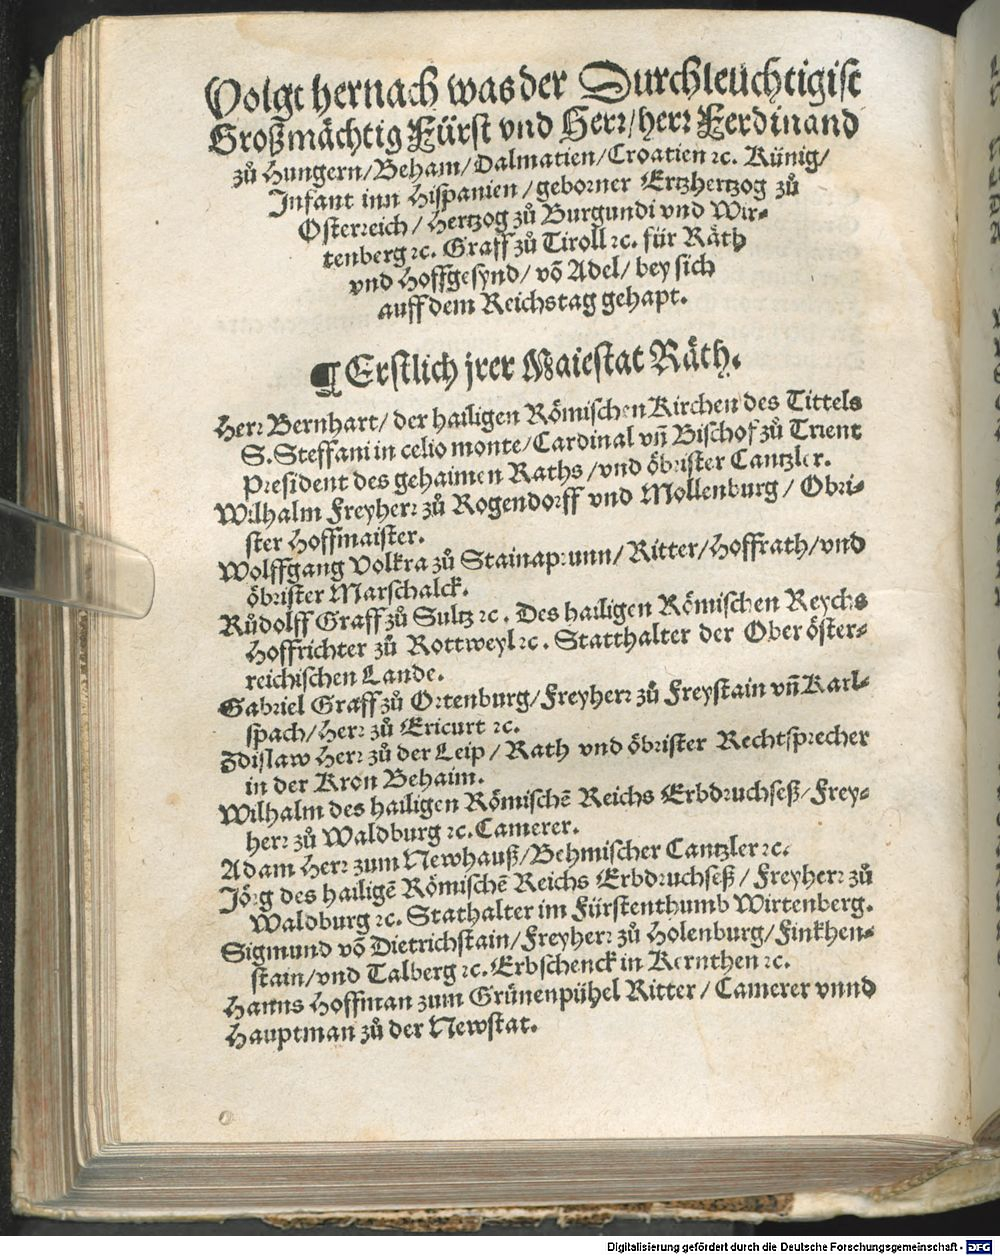 Volgt hernach was der Durchleuchtigist
Großmächtig Fürst vnd Herr/herr Ferdinand
zů Hungern/Beham/Dalmatien/Croatien ꝛc. Künig/
Infant inn Hispanien/geborner Ertzhertzog zů
Osterreich/Hertzog zů Burgundi vnd Wir-
tenberg ꝛc. Graff zů Tiroll ꝛc. für Räth
vnd Hoffgesynd/võ Adel/bey sich
auff dem Reichstag gehapt.
¶ Erstlich jrer Maiestat Räth.
Herr Bernhart/der hailigen Römischen Kirchen des Tittels
S. Steffani in celio monte/Cardinal vñ Bischof zů Trient
President des gehaimen Raths/vnd öbrister Cantzler.
Wilhalm Freyherr zů Rogendorff vnd Mollenburg/Obri-
ster Hoffmaister.
Wolffgang Volkra zů Stainaprunn/Ritter/Hoffrath/vnd
öbrister Marschalck.
Růdolff Graff zů Sultz ꝛc. Des hailigen Römischen Reychs
Hoffrichter zů Rottweyl ꝛc. Statthalter der Ober öster-
reichischen Lande.
Gabriel Graff zů Ortenburg/Freyherr zů Freystain vñ Karl-
spach/Herr zů Ericurt ꝛc.
Zdislaw Herr zů der Leip/Rath vnd öbrister Rechtsprecher
in der Kron Behaim.
Wilhalm des hailigen Römischẽ Reichs Erbdruchseß/Frey-
herr zů Waldburg ꝛc. Camerer.
Adam Herr zum Newhauß/Behmischer Cantzler ꝛc.
Jörg des hailigẽ Römischẽ Reichs Erbdruchseß/Freyherr zů
Waldburg ꝛc. Stathalter im Fürstenthumb Wirtenberg.
Sigmund võ Dietrichstain/Freyherr zů Holenburg/Finkhen-
stain/vnd Talberg ꝛc. Erbschenck in Kernthen ꝛc.
Hanns Hoffman zum Grünenpühel Ritter/Camerer vnnd
Hauptman zů der Newstat.
Digitalisierung gefördert durch die Deutsche Forschungsgemeinschaft - DFG